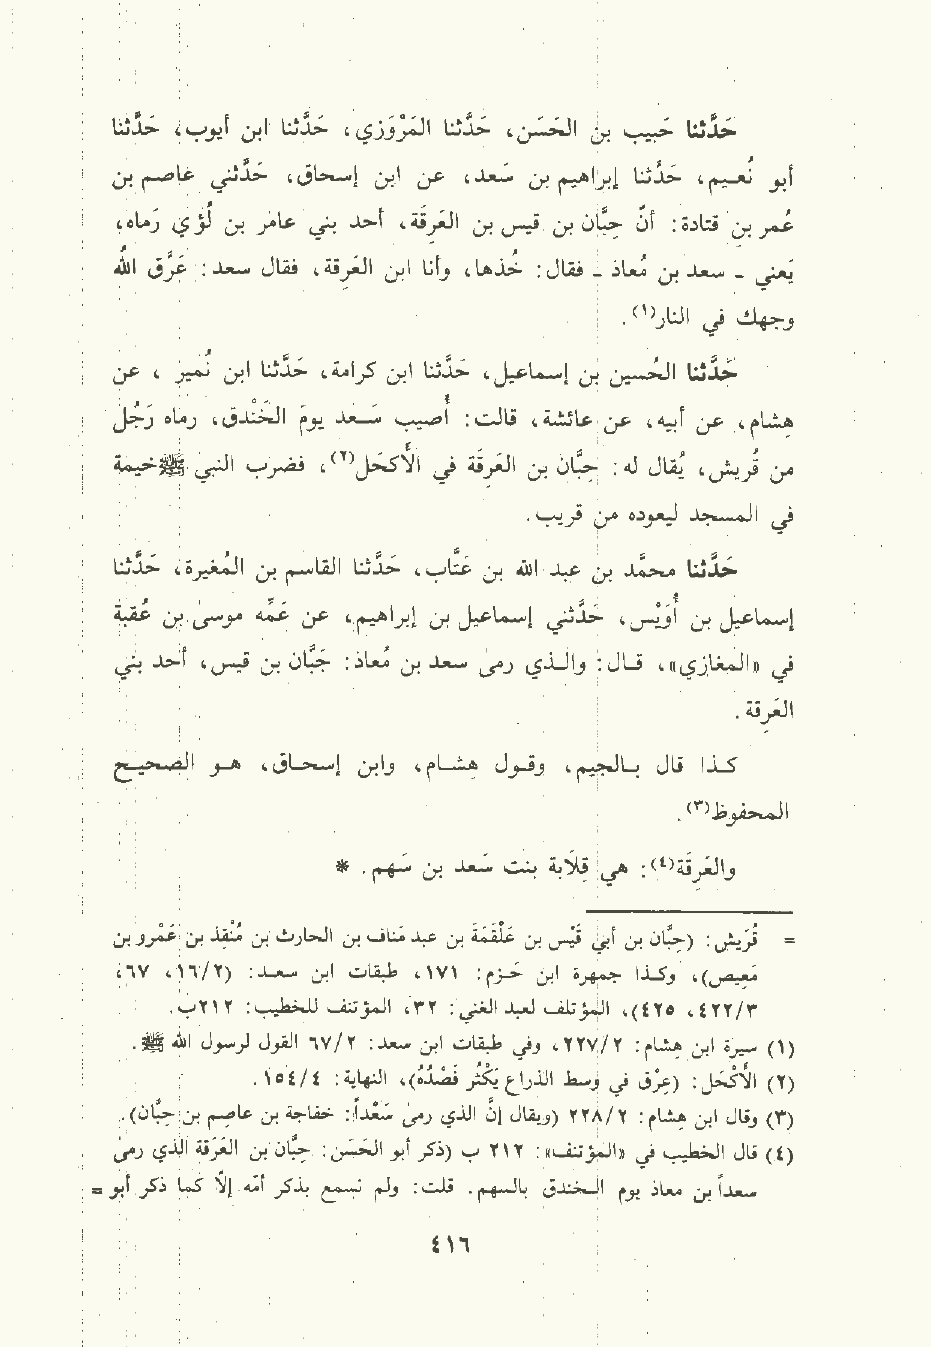 حَدَّثنا حَبيب بن الحَسَن، حَدَّثنا المَرْوَزي، حَدَّثنا ابن أيوب، حَدَّثنا
أبو نُعيـم، حَدَّثنا إبراهيم بن سَعد، عن ابن إسحاق، حَدَّثني عاصم بن
عُمر بن قتادة: أنَّ حِبَّان بن قيس بن العَرِقَة، أحد بني عامر بن لُؤي رَماه،
يَعني - سعد بن مُعاذ - فقال: خُذها، وأنا ابن العَرِقة، فقال سعد: عَرَّق اللهُ
وجهك في النار(١).
حَدَّثنا الحُسين بن إسماعيل، حَدَّثنا ابن كرامة، حَدَّثنا ابن نُمير، عن
هشام، عن أبيه، عن عائشة، قالت: أُصيب سَعـد يومَ الخَنْدق، رماه رَجُل
من قُريش، يُقال له: حِبَّان بن العَرِقَة في الأَكحَل(٢)، فضرب النبي ﷺ خيمة
في المسجد ليعوده من قريب.
حَدَّثنا محمَّد بن عبد الله بن عَتَّاب، حَدَّثنا القاسم بن المُغيرة، حَدَّثنا
إسماعيل بن أُوَيْس، حَدَّثني إسماعيل بن إبراهيم، عن عَمِّه موسىٰ بن عُقبة
في «المغازي»، قـال: والـذي رمىٰ سعد بن مُعاذ: جَبَّان بن قيس، أحد بني
العَرِقة.
كـذا قال بـالجيم، وقـول هشـام، وابن إسحـاق، هـو الصحيـح
المحفوظ(٣).
والعَرِقَة(٤): هي قِلَابة بنت سَعد بن سَهم. *
= قُرَيش: (حِبَّان بن أبي قَيْس بن عَلْقَمَة بن عبد مَناف بن الحارث بن مُنْقِذ بن عَمْرو بن
مَعِيص)، وكذا جمهرة ابن حَـزم: ١٧١، طبقات ابن سعـد: (١٦/٢، ٦٧،
٤٢٢/٣، ٤٢٥)، المؤتلف لعبد الغني: ٣٢، المؤتنف للخطيب: ٢١٢ب.
(١) سيرة ابن هشام: ٢٢٧/٢، وفي طبقات ابن سعد: ٦٧/٢ القول لرسول الله ﷺ.
(٢) الأَكْحَل: (عِرْق في وسط الذراع يَكْثُر فَصْدُهُ)، النهاية: ١٥٤/٤.
(٣) وقال ابن هشام: ٢٢٨/٢ (ويقال إنَّ الذي رمىٰ سَعْداً: خفاجة بن عاصم بن حِبَّان).
(٤) قال الخطيب في «المؤتنف»: ٢١٢ ب (ذكر أبو الحَسَن: حِبَّان بن العَرَقة الذي رمىٰ
سعداً بن معاذ يوم الخندق بالسهم. قلت: ولم نسمع بذكر أمّه إلاَّ كما ذكر أبو =
٤١٦